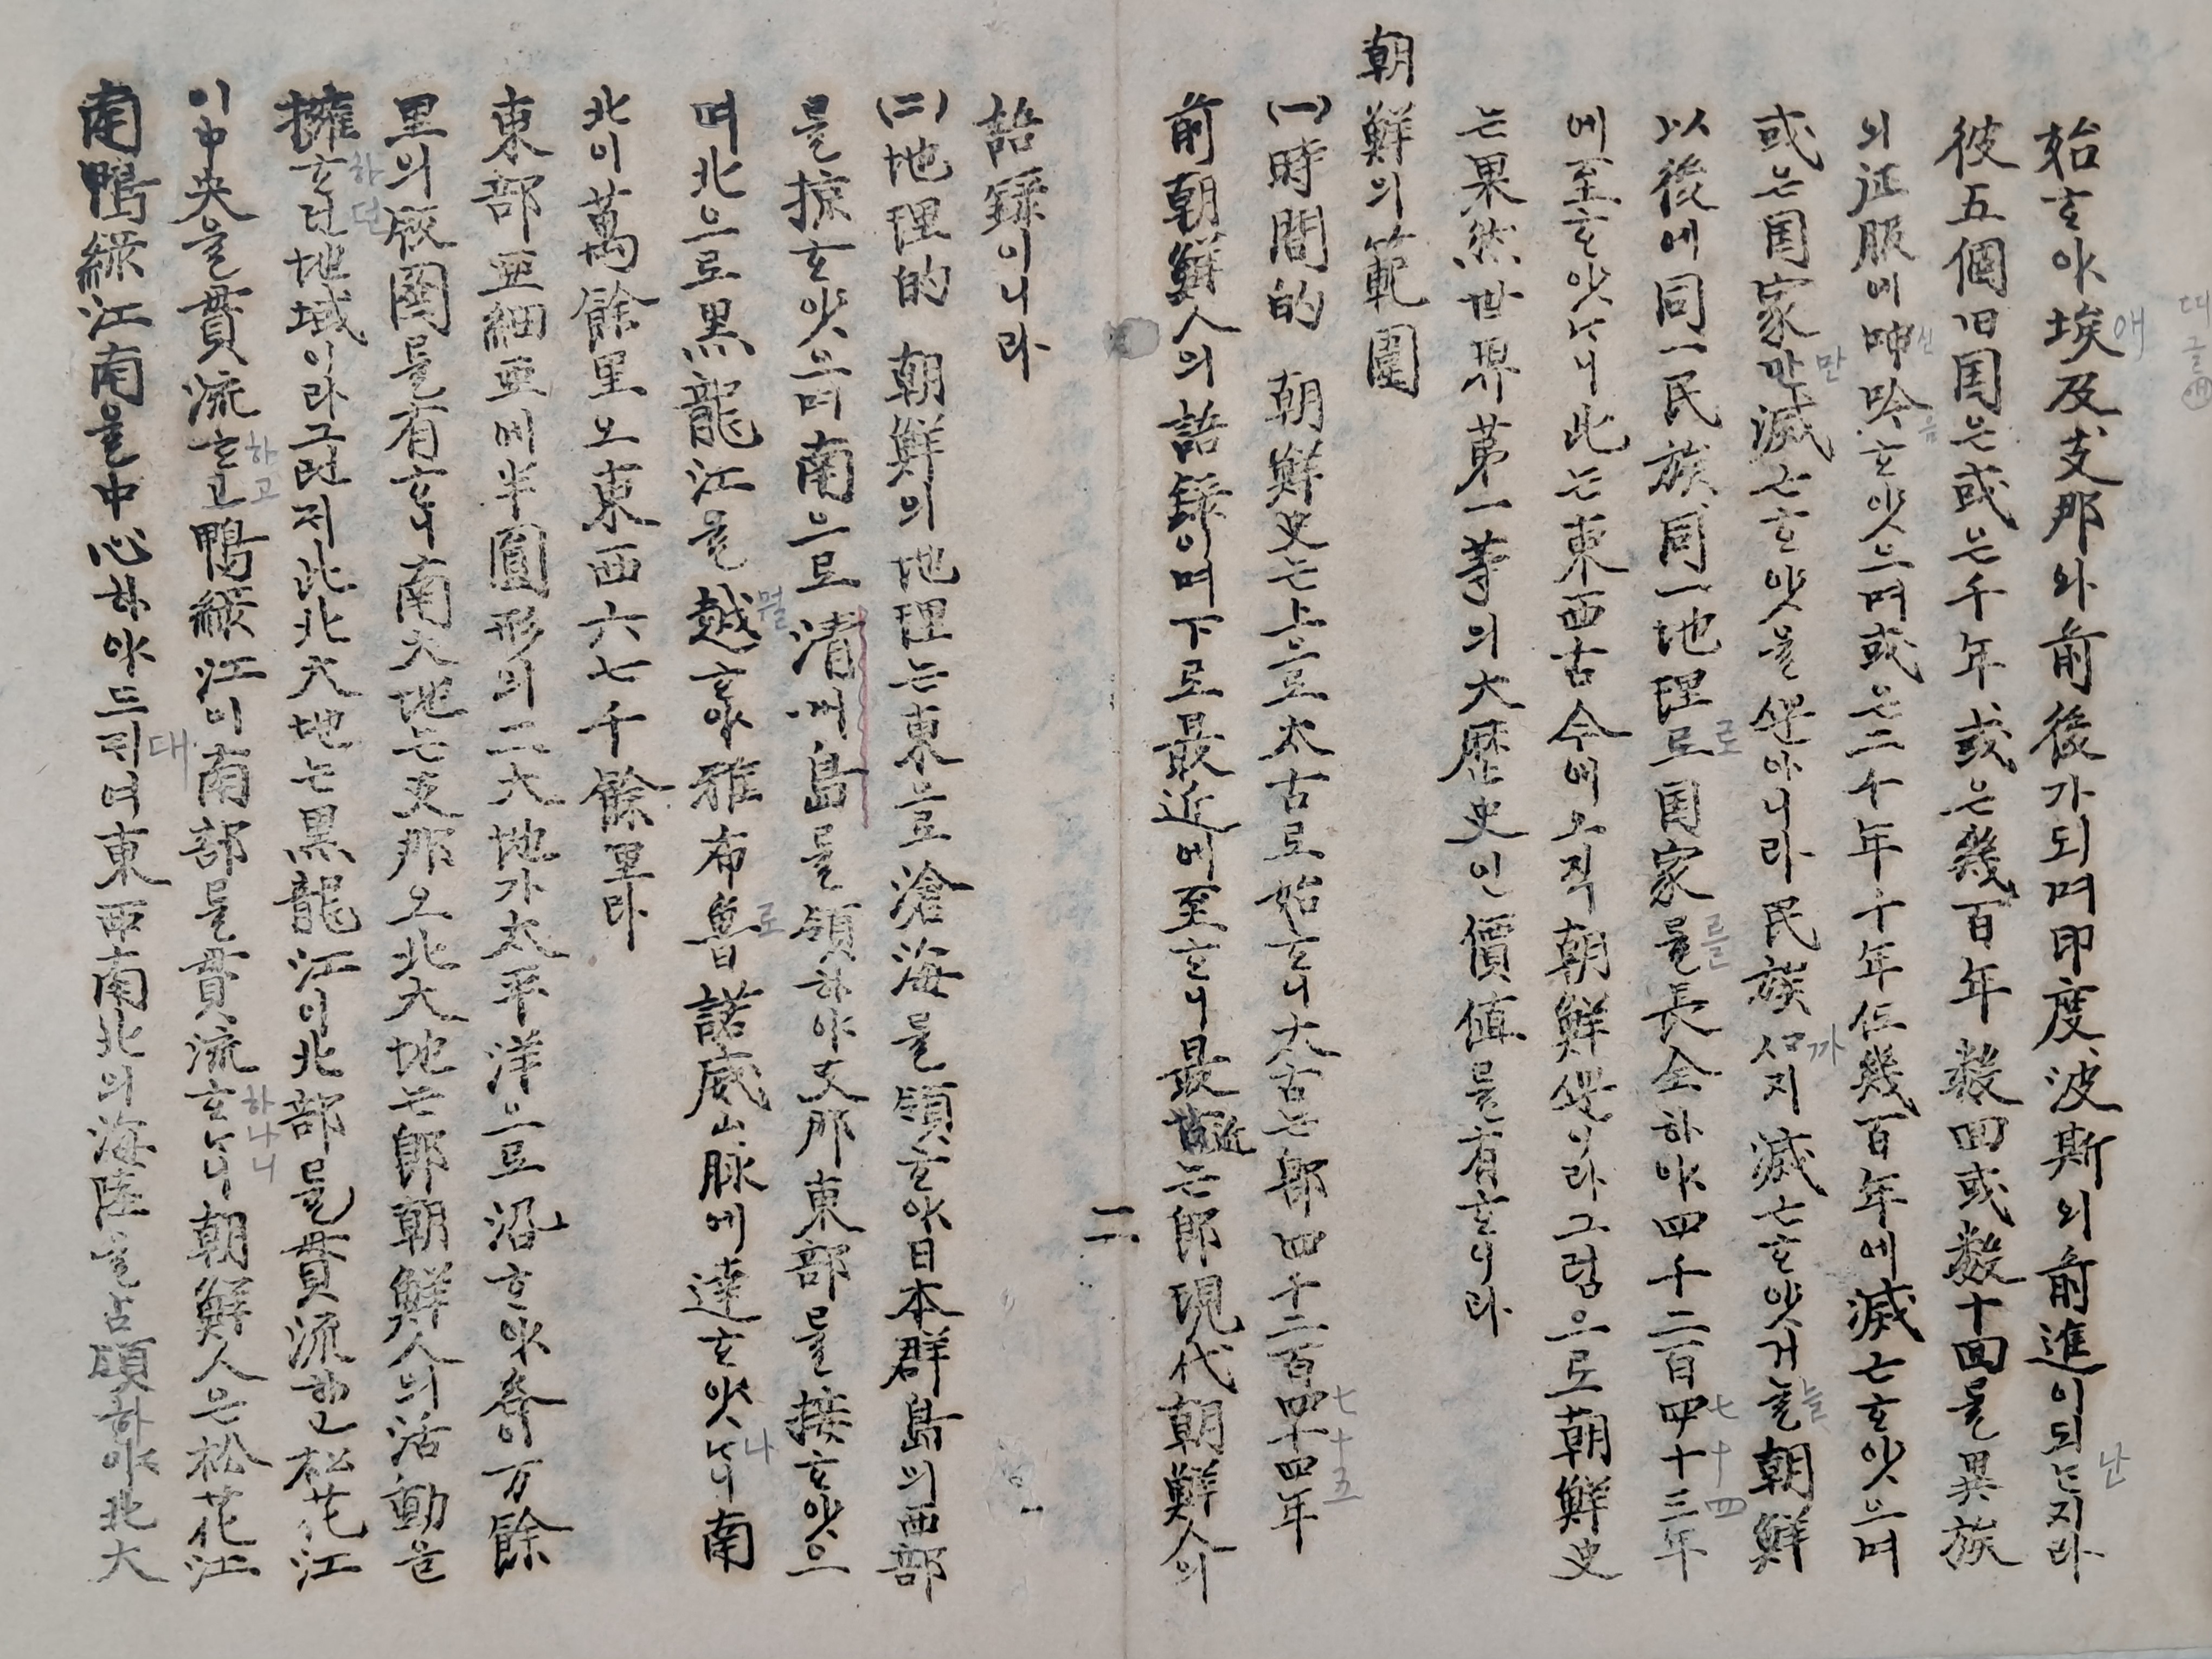 始ᄒᆞ야 埃及、支那와 前後가 되며 印度、波斯의 前進이 되ᄂᆞᆫ지라
彼五個旧国은 或은 千年、或은 幾百年 数回 或 数十回를 異族
의 征服에 呻吟ᄒᆞ얏으며 或은 二千年 千年 仨幾百年에 滅亡ᄒᆞ얏으며
或은 国家만 滅亡ᄒᆞ얏을 ᄲᅮᆫ 아니라 民族ᄭᆞ지 滅亡ᄒᆞ얏거늘 朝鮮
以後에 同一民族、同一地理로 国家를 長全하야 四千二百四十三年
에 至ᄒᆞ얏ᄂᆞ니 此ᄂᆞᆫ 東西古今에 오직 朝鮮ᄲᅮᆫ이라 그럼으로 朝鮮史
ᄂᆞᆫ 果然 世界 第一等의 大歷史인 價値를 有ᄒᆞ니라
朝鮮의 範圍
(一) 時間的 朝鮮史ᄂᆞᆫ 上으로 太古로 始ᄒᆞ니 太古ᄂᆞᆫ 即 四千二百四十四年
前 朝鮮人의 語録이며 下로 最近에 至ᄒᆞ니 最近ᄂᆞᆫ 即 現代 朝鮮人의
二
語録이니라
(二) 地理的 朝鮮의 地理ᄂᆞᆫ 東으로 滄海를 領ᄒᆞ야 日本群島의 西部
를 掠ᄒᆞ얏으며 南으로 清 島를 領하야 支那東部를 接ᄒᆞ얏으
며 北으로 黒龍江을 越ᄒᆞ야 雅布魯諾威山脉에 達ᄒᆞ얏ᄂᆞ니 南
北이 萬餘里오 東西 六七千餘里라
東部亞細亞에 半圓形의 二大地가 太平洋으로 沿ᄒᆞ야 各이 万餘
里의 版圖를 有ᄒᆞ니 南大地ᄂᆞᆫ 支那오 北大地ᄂᆞᆫ 即 朝鮮人의 活動을
擁ᄒᆞ던 地域이라 그런ᄃᆡ 此 北大地ᄂᆞᆫ 黒龍江이 北部를 貫流ᄒᆞ고 松花江
이 中央을 貫流ᄒᆞ고 鴨綠江이 南部를 貫流ᄒᆞᄂᆞ니 朝鮮人은 松花江
南 鴨綠江南을 中心하야 드ᄃᆡ여 東西南北의 海陸을 占領하야 北大
애
난
신
음
만
까
늘
로
를
七十四
七十五
뭘
로
나
하던
하고
하나니
대